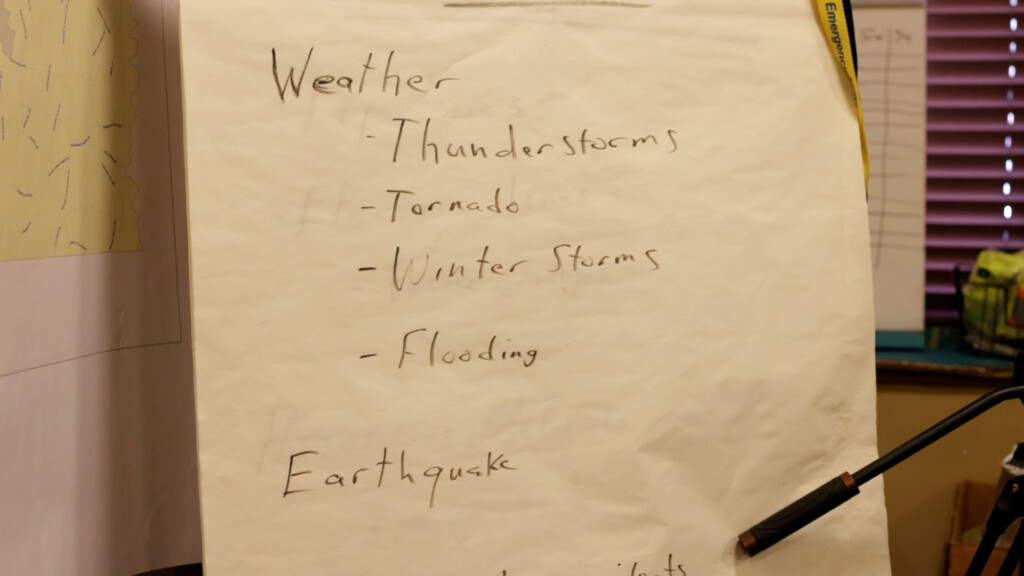 Weather
- Thunderstorms
- Tornado
- Winter Storms
- Flooding
Earthquake